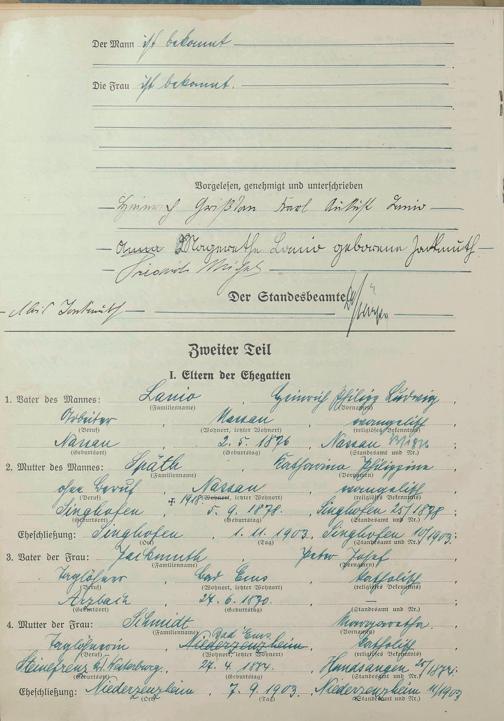 Der Mann ist bekannt
Die Frau ist bekannt.
Vorgelesen, genehmigt und unterschrieben
Heinrich Christian Karl August Lanio
Anna Margarethe Lanio geborene Jackmuth
Der Standesbeamte
Jackmuth
Zweiter Teil
I. Eltern der Ehegatten
1. Vater des Mannes: Lanio, Heinrich Philipp Ludwig,
(Familienname) (Vornamen)
Arbeiter, Nassau, evangelisch,
(Beruf) (Wohnort, letzter Wohnort) (religiöses Bekenntnis)
Nassau, 2. 5. 1876, Nassau
(Geburtsort) (Geburtstag) (Standesamt und Nr.)
2. Mutter des Mannes: Späth, Katharina Philippine,
(Familienname) (Vornamen)
ohne Beruf, Nassau, evangelisch,
(Beruf) + 1918 (Wohnort, letzter Wohnort) (religiöses Bekenntnis)
Singhofen, 5. 9. 1878, Singhofen 25/1878;
(Geburtsort) (Geburtstag) (Standesamt und Nr.)
Eheschließung: Singhofen, 1. 11. 1903, Singhofen 10/1903;
(Ort) (Tag) (Standesamt und Nr.)
3. Vater der Frau: Jackmuth, Peter Josef,
(Familienname) (Vornamen)
Taglöhner, Bad Ems, katholisch,
(Beruf) (Wohnort, letzter Wohnort) (religiöses Bekenntnis)
Arzbach, 24. 6. 1870, —
(Geburtsort) (Geburtstag) (Standesamt und Nr.)
4. Mutter der Frau: Schmidt, Margaretha,
(Familienname) Bad Ems (Vornamen)
Taglöhnerin, Niederzenzheim, katholisch,
(Beruf) (Wohnort, letzter Wohnort) (religiöses Bekenntnis)
Steinefrenz, 27. 4. 1874, Hundsangen 25/1874;
(Geburtsort) (Geburtstag) (Standesamt und Nr.)
Eheschließung: Niederzenzheim, 7. 9. 1903, Niederzenzheim 11/1903
(Ort) (Tag) (Standesamt und Nr.)